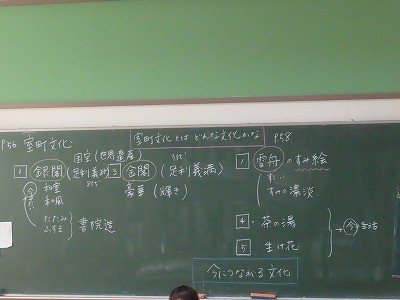 P56 室町文化
室町文化とは どんな文化かな
P58
国宝(世界遺産)
1 銀閣(足利義政)
8代
和室
和風
たたみ
ふすま
書院造
3 金閣(足利義満)
3代
豪華(輝き)
1 雪舟のすみ絵
すみの濃淡
4・茶の湯
5 生け花
→今 生活
今につながる文化